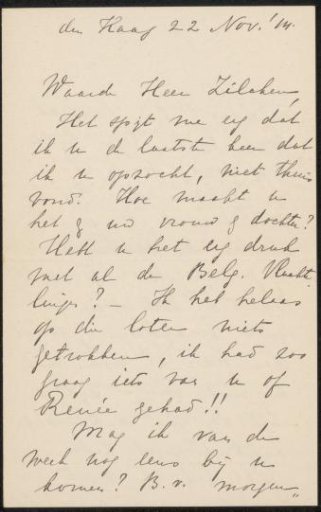 den Haag 22 Nov. '14.
Waarde Heer Zilcken,
Het spijt me erg dat
ik u de laatste keer dat
ik u opzocht, niet thuis
vond. Hoe maakt u
het & uw vrouw & dochter?
Hebt u het erg druk
met al de Belg. Vluchte-
lingen? — Ik heb helaas
op die loten niets
getrokken, ik had zoo
graag iets van u of
Renée gehad!!
Mag ik van de
week nog eens bij u
komen? B.v. morgen